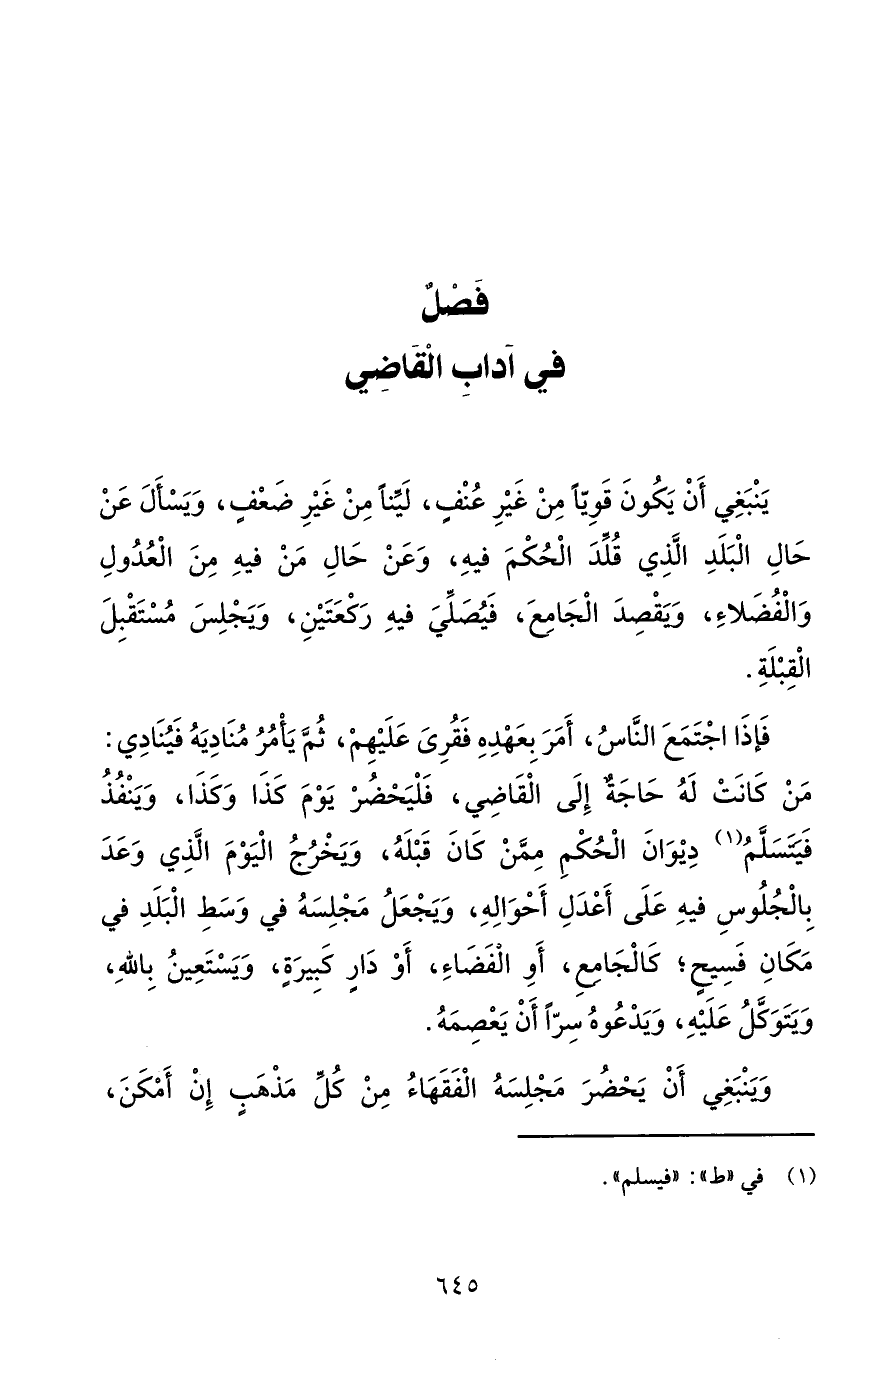 فَصْلٌ
في آدابِ الْقَاضِي
يَنْبَغِي أَنْ يَكُونَ قَوِيّاً مِنْ غَيْرِ عُنْفٍ، لَيِّناً مِنْ غَيْرِ ضَعْفٍ، وَيَسْأَلَ عَنْ
حَالِ الْبَلَدِ الَّذِي قُلِّدَ الْحُكْمَ فيهِ، وَعَنْ حَالِ مَنْ فيهِ مِنَ الْعُدُولِ
وَالْفُضَلاءِ، وَيَقْصِدَ الْجَامِعَ، فَيُصَلِّيَ فيهِ رَكْعَتَيْنِ، وَيَجْلِسَ مُسْتَقْبِلَ
الْقِبْلَةِ.
فَإِذَا اجْتَمَعَ النَّاسُ، أَمَرَ بِعَهْدِهِ فَقُرِىَ عَلَيْهِمْ، ثُمَّ يَأْمُرُ مُنَادِيَهُ فَيُنَادِي:
مَنْ كَانَتْ لَهُ حَاجَةٌ إِلَى الْقَاضِي، فَلْيَحْضُرْ يَوْمَ كَذَا وَكَذَا، وَيَنْفُذُ
فَيَتَسَلَّمُ(١) دِيْوَانَ الْحُكْمِ مِمَّنْ كَانَ قَبْلَهُ، وَيَخْرُجُ الْيَوْمَ الَّذِي وَعَدَ
بِالْجُلُوسِ فيهِ عَلَى أَعْدَلِ أَحْوَالِهِ، وَيَجْعَلُ مَجْلِسَهُ في وَسَطِ الْبَلَدِ في
مَكَانِ فَسِيحٍ؛ كَالْجَامِعِ، أَوِ الْفَضَاءِ، أَوْ دَارٍ كَبِيرَةٍ، وَيَسْتَعِينُ بِاللهِ،
وَيَتَوَكَّلُ عَلَيْهِ، وَيَدْعُوهُ سِرّاً أَنْ يَعْصِمَهُ.
وَيَنْبَغِي أَنْ يَحْضُرَ مَجْلِسَهُ الْفَقَهَاءُ مِنْ كُلِّ مَذْهَبٍ إِنْ أَمْكَنَ،
(١) في «ط»: «فيسلم».
٦٤٥